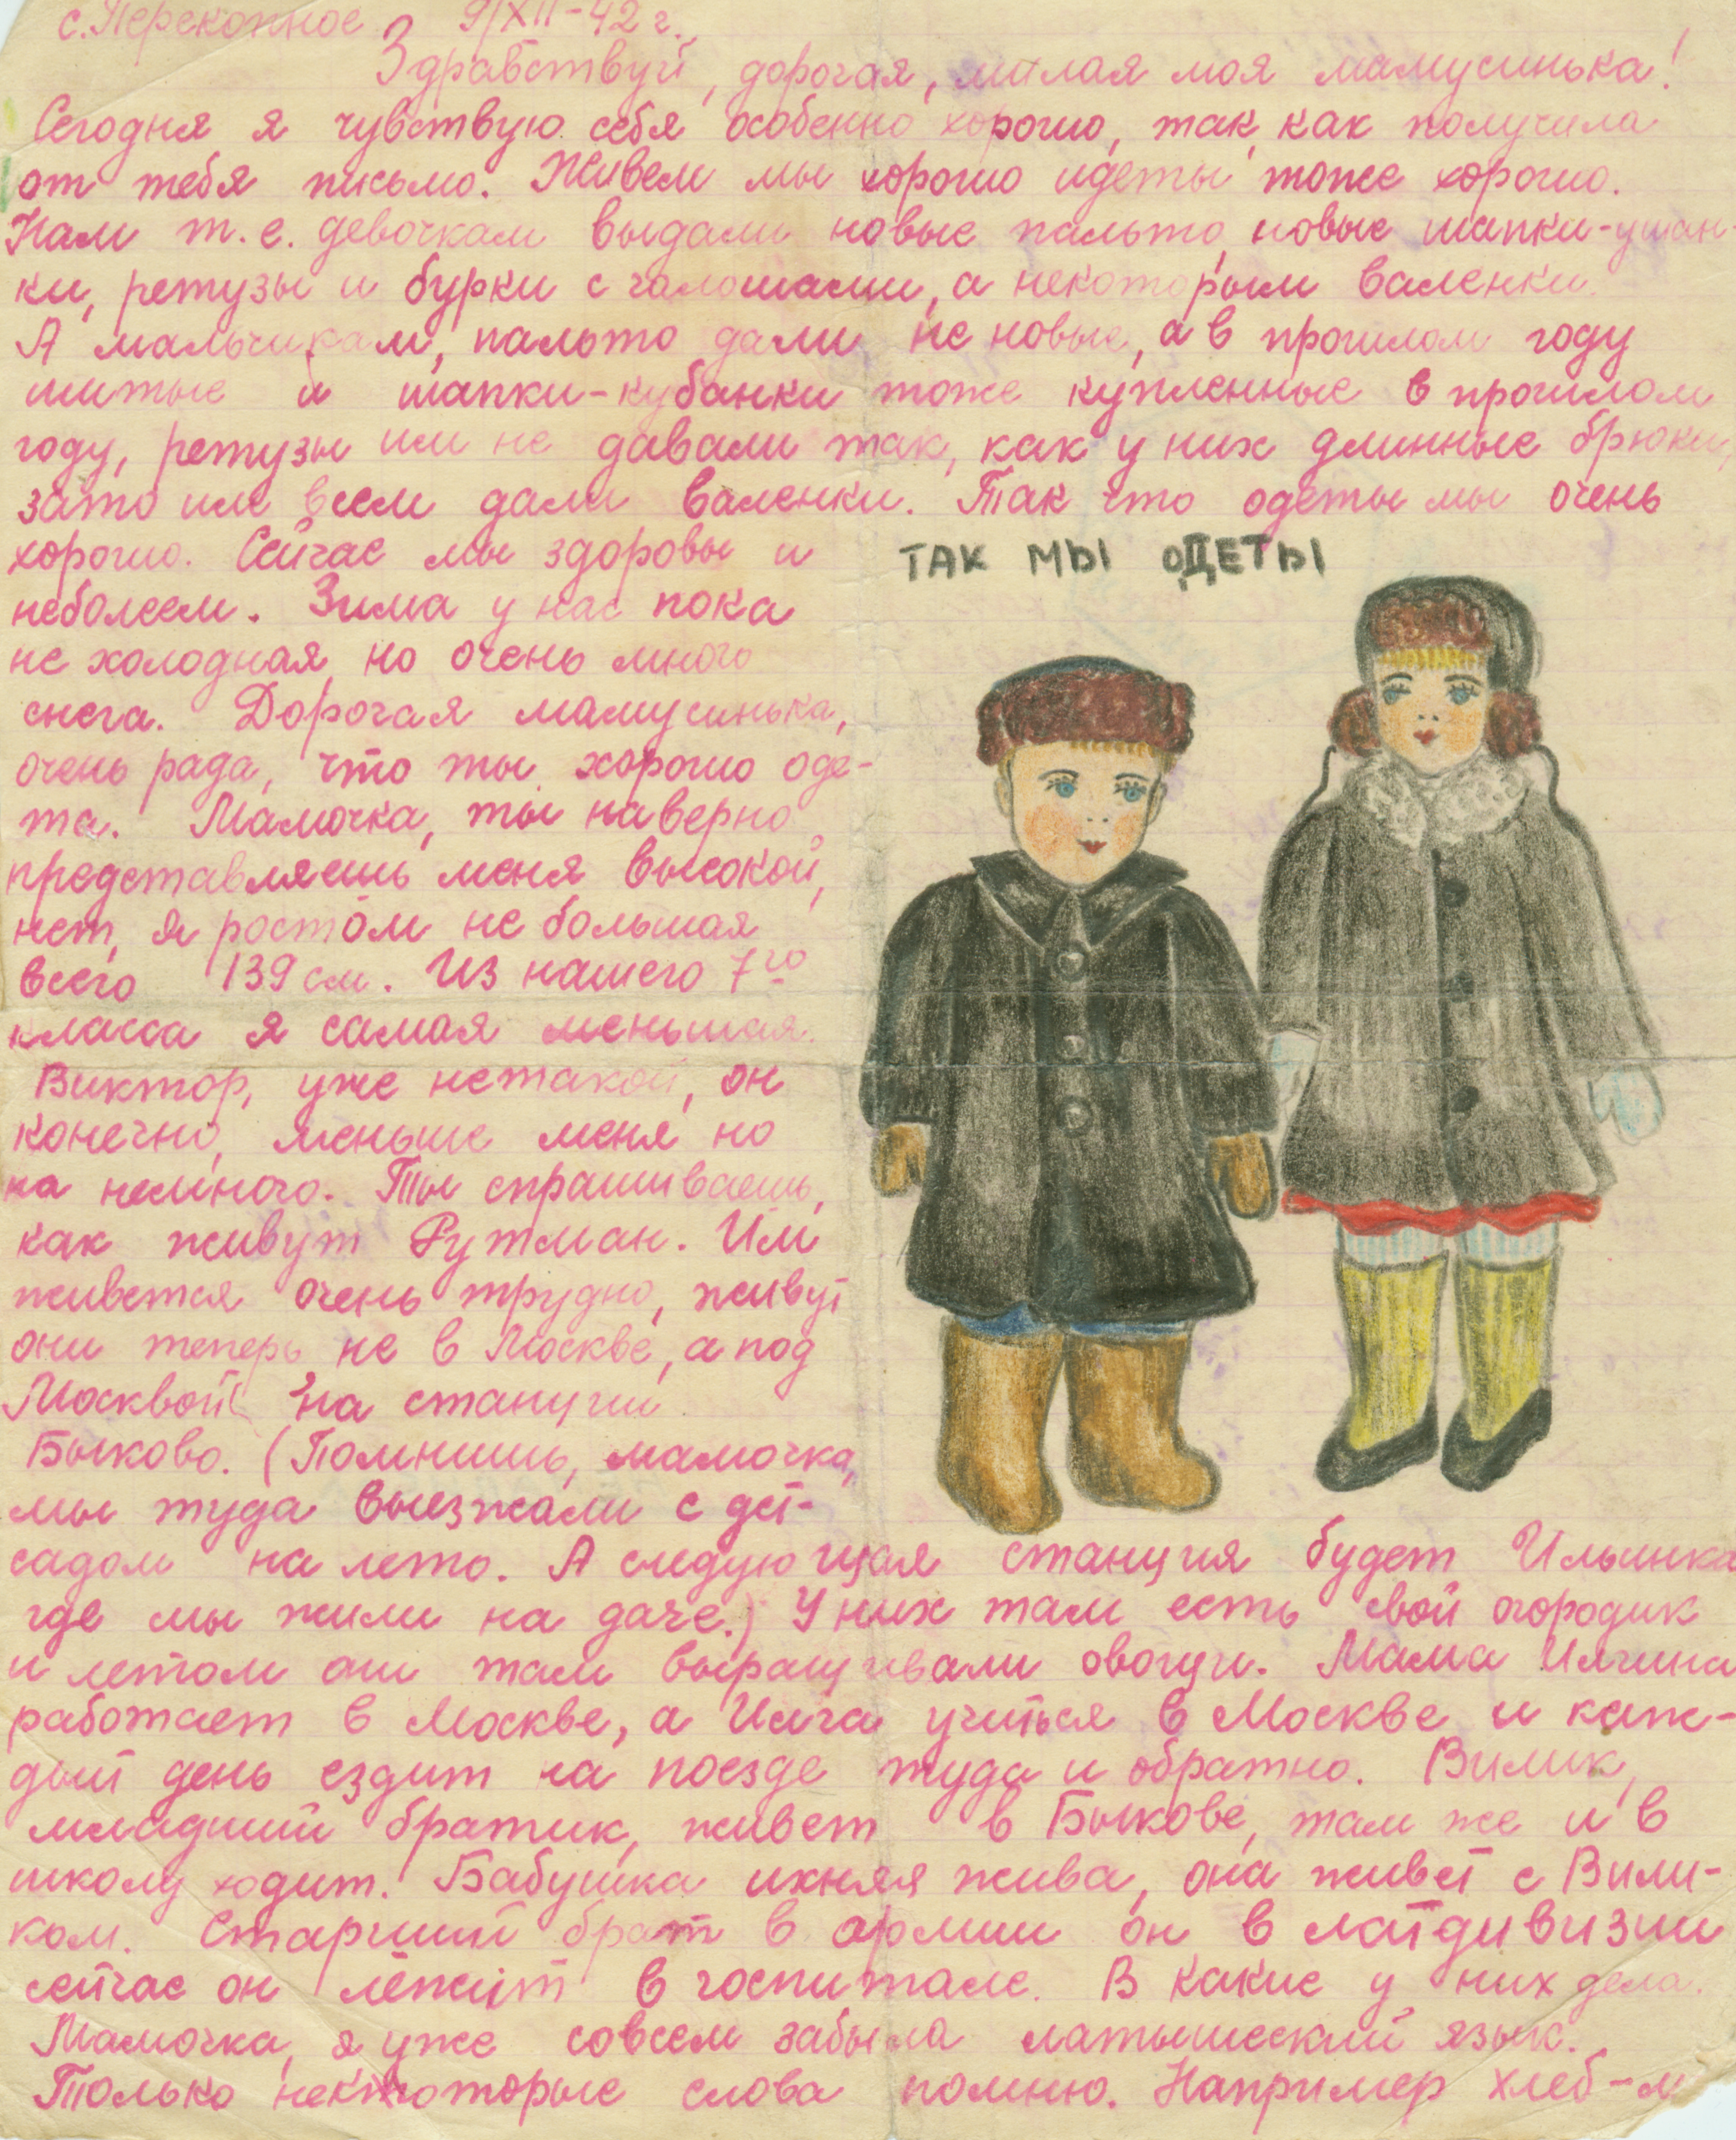 с. Перекопное 9/XII-42 г.
Здравствуй, дорогая, милая моя мамусинька!
Сегодня я чувствую себя особенно хорошо, так, как получила
от тебя письмо. Живем мы хорошо идеты тоже хорошо.
Нам т.е. девочкам выдали новые пальто, новые шапки-ушан-
ки, ретузы и бурки с галошами, а некоторым валенки.
А мальчикам, пальто дали не новые, а в прошлом году
шитые и шапки-кубанки тоже купленные в прошлом
году, ретузы им не давали так, как у них длинные брюки,
зато им всем дали валенки. Так что одеты мы очень
хорошо. Сейчас мы здоровы и
неболеем. Зима у нас пока
не холодная, но очень много
снега. Дорогая мамусинька,
очень рада, что ты хорошо оде-
та. Мамочка, ты наверно
представляешь меня высокой,
нет, я ростом не большая
всего 139 см. Из нашего 7го
класса я самая меньшая.
Виктор, уже нетакой, он
конечно, меньше меня но
на немного. Ты спрашиваешь,
как живут Рутман. Им
живется очень трудно, живут
они теперь не в Москве, а под
Москвой на станции
Быково. (Помнишь, мамочка,
мы туда выезжали с дет-
садом на лето. А следующая станция будет Ильинка
где мы жили на даче.) У них там есть свой огородик
и летом они там выращивали овощи. Мама Имчина
работает в Москве, а Имча учиться в Москве и каж-
дый день ездит на поезде туда и обратно. Вилик,
младший братик, живет в Быкове, там же и в
школу ходит. Бабушка ихняя жива, она живет с Вили-
ком. Старший брат в армии он в латдивизии
сейчас он лежит в госпитале. В какие у них дела.
Мамочка, я уже совсем забыла латышеский язык.
Только некоторые слова помню. Например хлеб-м
ТАК МЫ ОДЕТЫ